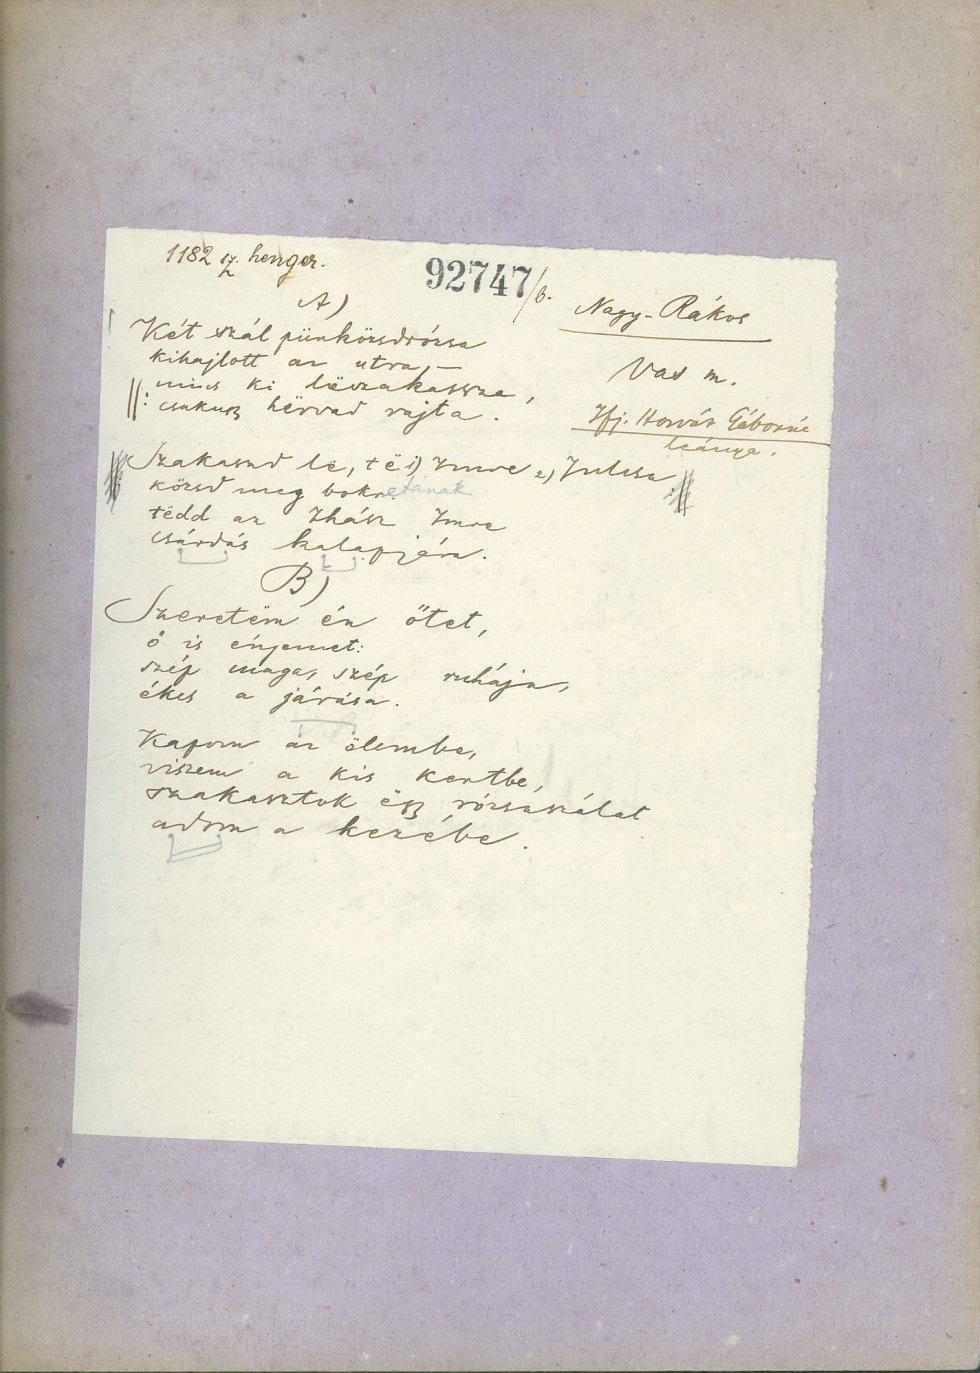 1182 sz. henger.
92747/b.
Nagy-Rákos
Vas m.
Ifj. Horvát Gáborné
leánya.
A)
Két szál pünközsdrózsa
kihajlott az utra, —
nincs ki lëszakassza,
csakugy hërvad rajta.
Szakaszd lë, të Imre Julcsa
közsd meg bokrétának
tëdd az Ihász Imre
csárdás kalapjára.
B)
Szeretëm én őtet,
ő is énjemet:
szép maga, szép ruhája,
ékes a járása.
Kapom az ölembe,
viszem a kis kertbe,
szakasztok ëgy rózsaszálat
adom a kezébe.